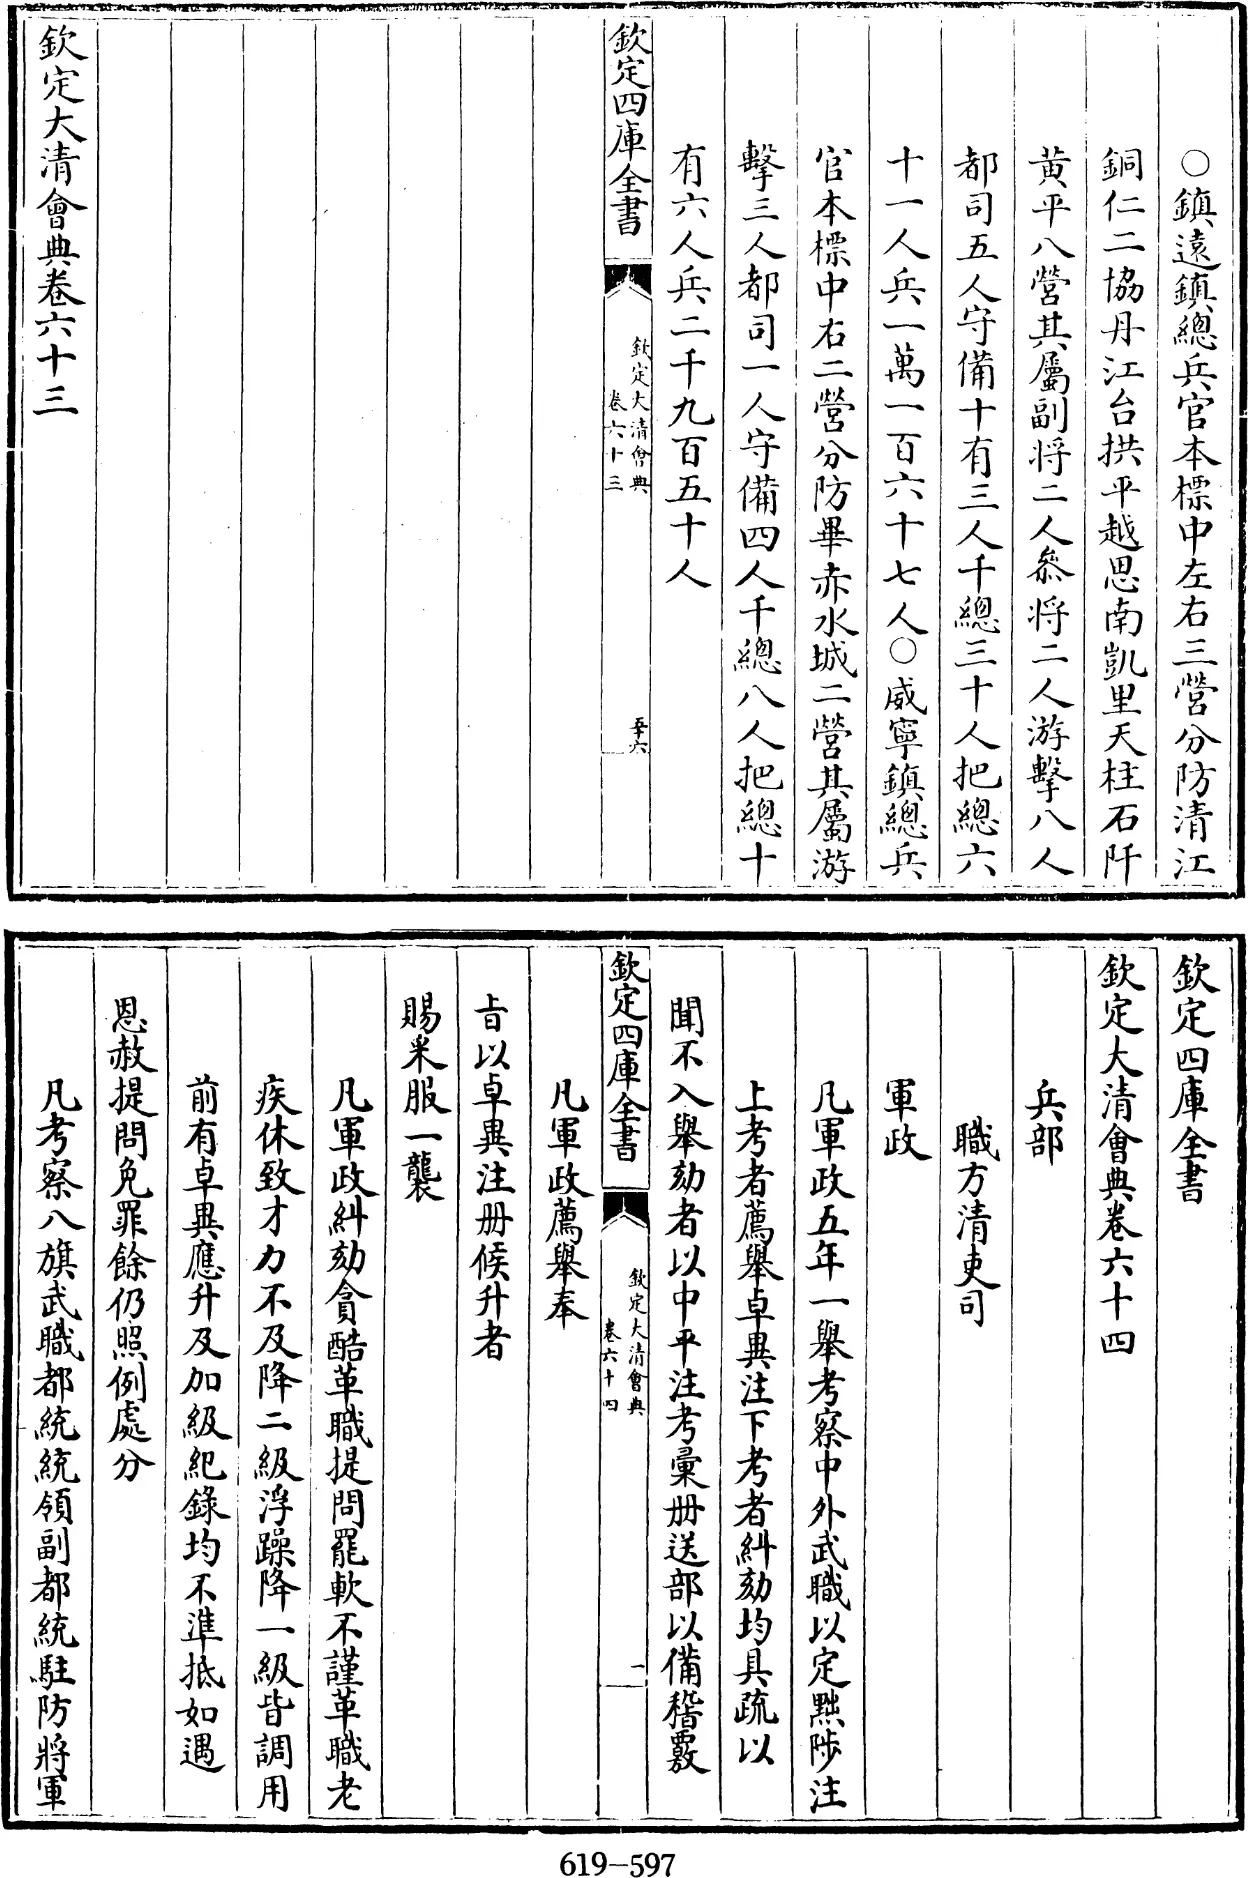 ○鎮遠鎮總兵官本標中左右三營分防清江
銅仁二協丹江台拱平越思南凱里天柱石阡
黃平八營其屬副將二人叅將二人游擊八人
都司五人守備十有三人千總三十人把總六
十一人兵一萬一百六十七人○威寧鎮總兵
官本標中右二營分防畢赤水城二營其屬游
擊三人都司一人守備四人千總八人把總十
有六人兵二千九百五十人
欽定四庫全書
欽定大清會典
卷六十三
五十六
欽定大清會典卷六十三
欽定四庫全書
欽定大清會典卷六十四
兵部
職方清吏司
軍政
凡軍政五年一舉考察中外武職以定黜陟注
上考者薦舉卓異注下考者糾劾均具疏以
聞不入舉劾者以中平注考彙册送部以備稽覈
欽定四庫全書
欽定大清會典
卷六十四
一
凡軍政薦舉奉
旨以卓異注册候升者
賜采服一襲
凡軍政糾劾貪酷革職提問罷軟不謹革職老
疾休致才力不及降二級浮躁降一級皆調用
前有卓異應升及加級紀錄均不準抵如遇
恩赦提問免罪餘仍照例處分
凡考察八旗武職都統統領副都統駐防將軍
619-597